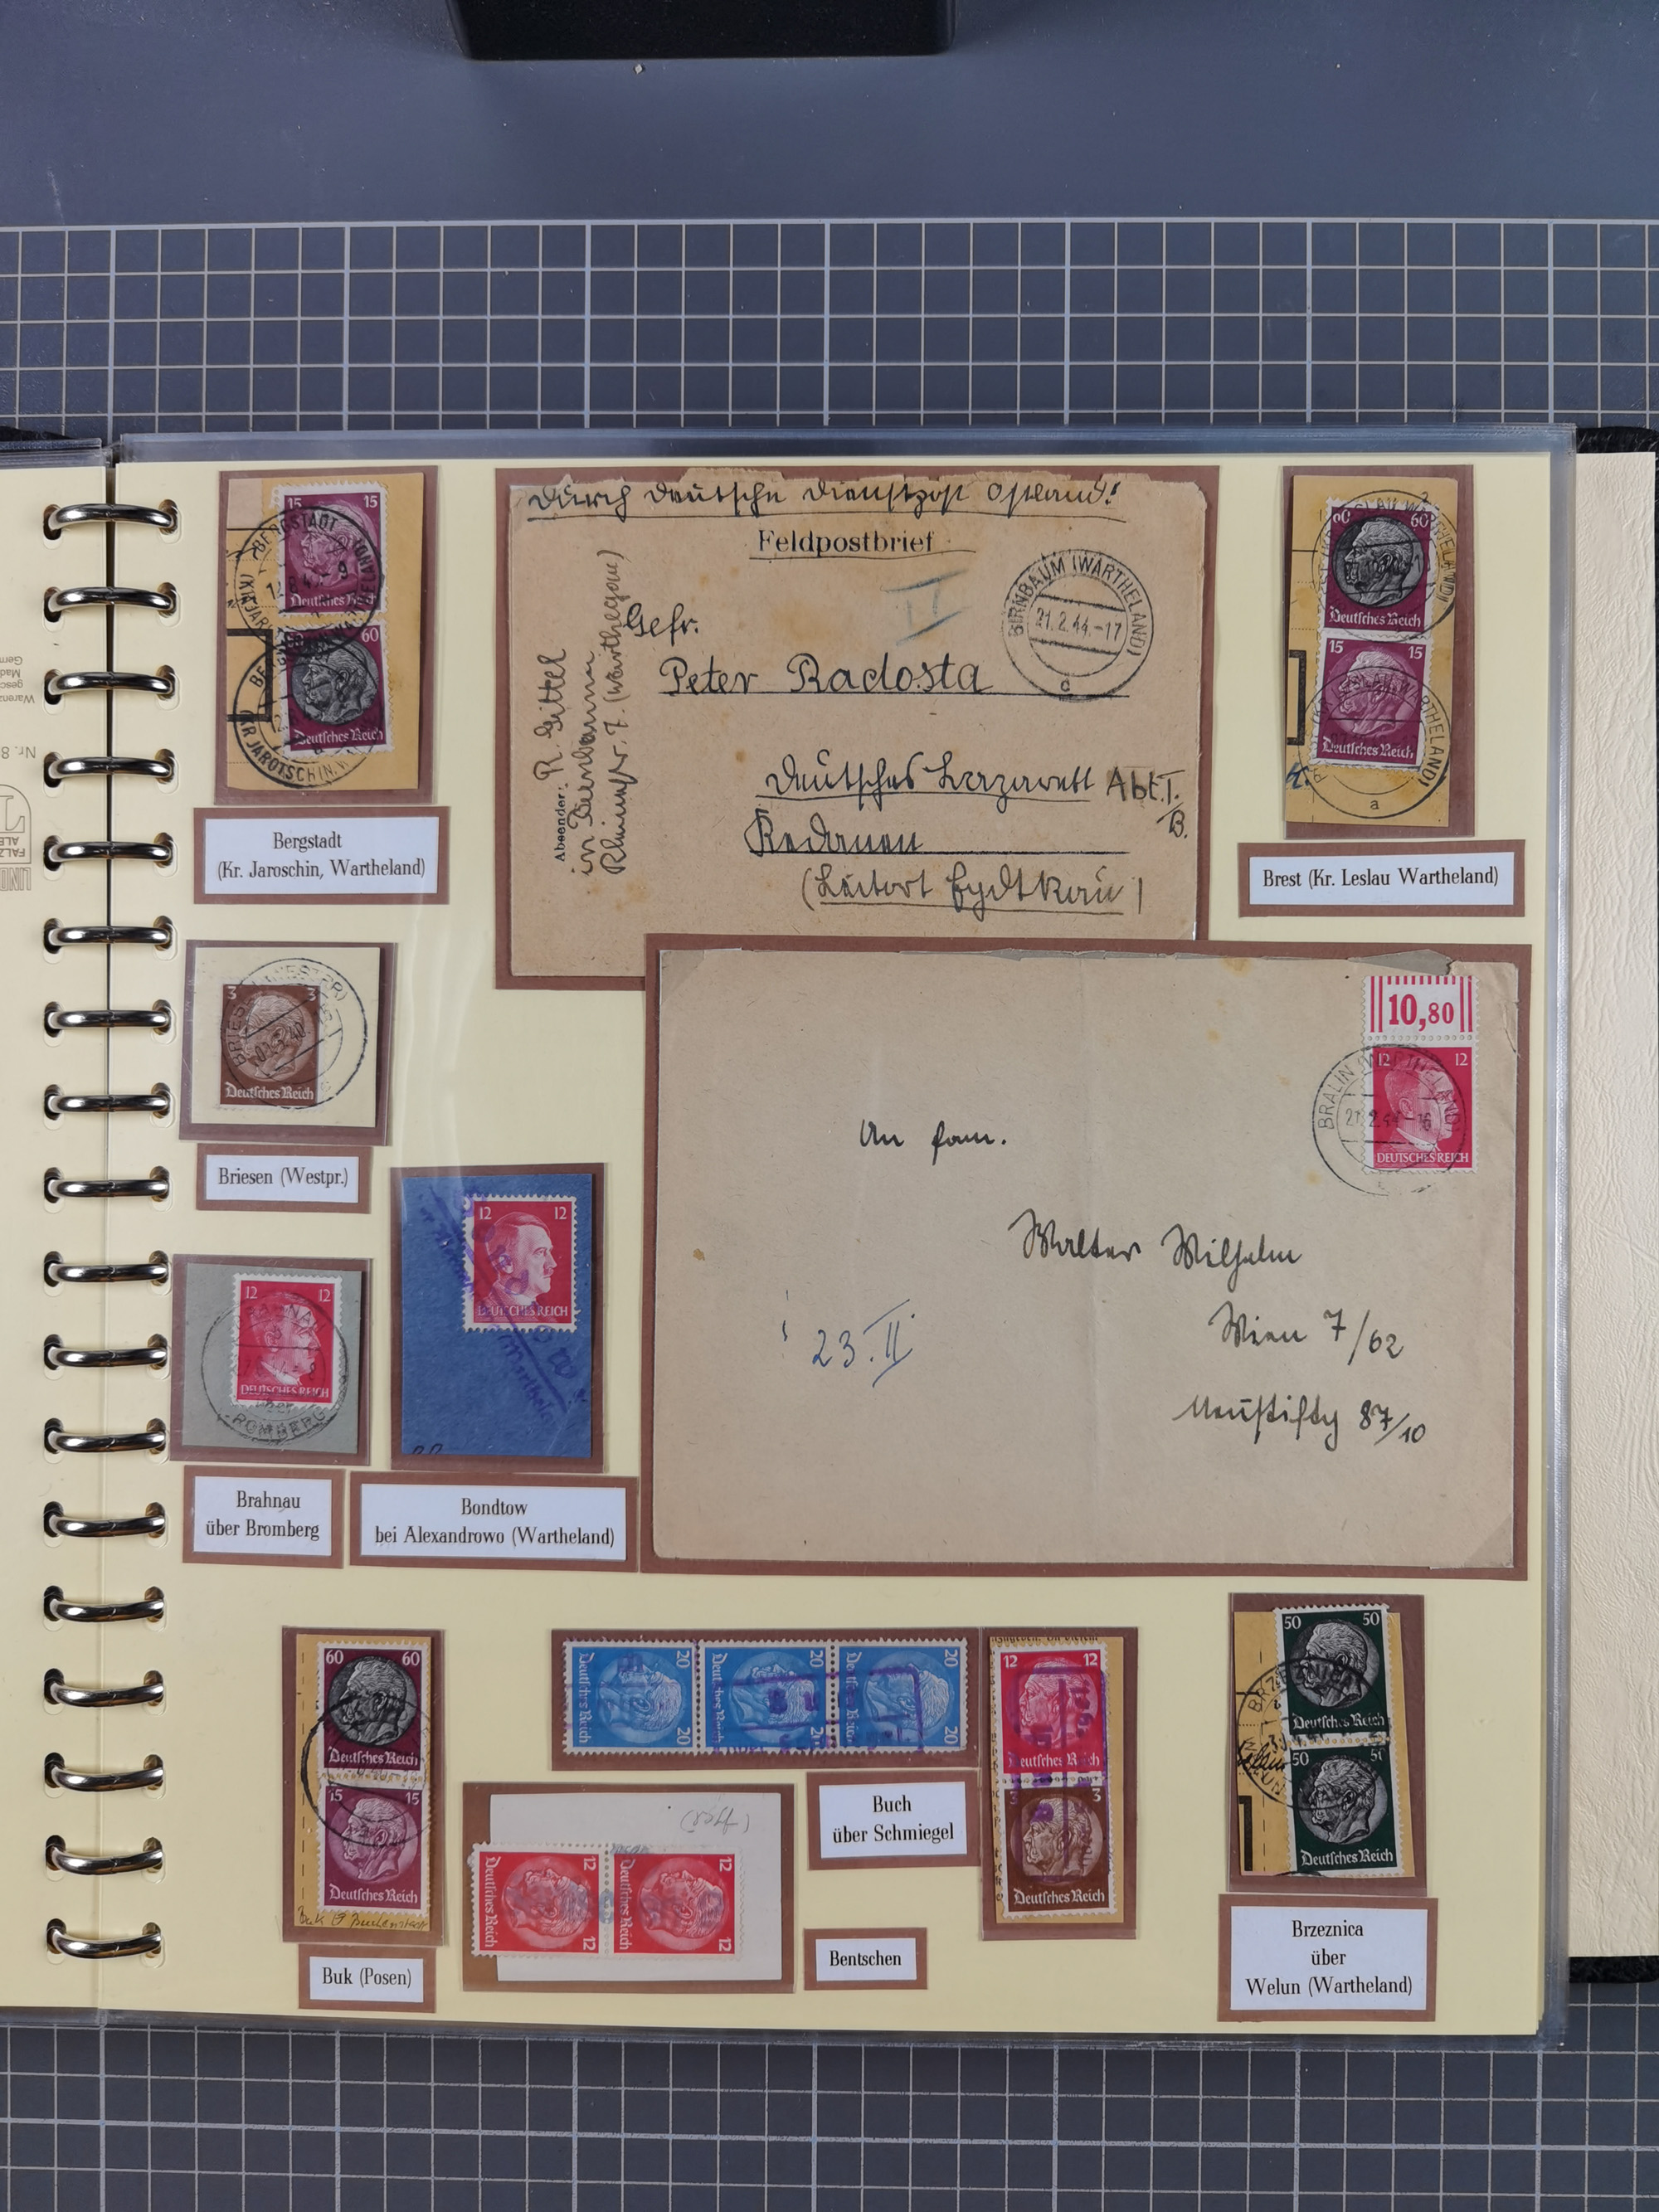 15 15
BERGSTADT
Deutsches Reich
60
Deutsches Reich
Bergstadt
(Kr. Jaroschin, Wartheland)
Durch Deutsche Dienstpost Ostland!
Feldpostbrief
II
BIRNBAUM (WARTHELAND)
21.2.44.-17
Gefr.
Peter Radosta
Deutsches Lazarett Abt. I.
B.
(Leitort Eydtkau)
Absender: R. Gittel
60 60
Deutsches Reich
15 15
Deutsches Reich
WARTHELAND)
a
Brest (Kr. Leslau Wartheland)
3 3
Deutsches Reich
Briesen (Westpr.)
10,80
12 12
DEUTSCHES REICH
BRALIN (WARTHELAND)
21.2.44.-16
An Fam.
Walter Wilhelm
Wien 7/62
Neustiftg 87/10
23.II.
12 12
DEUTSCHES REICH
BROMBERG
Brahnau
über Bromberg
12 12
DEUTSCHES REICH
Bondtow
bei Alexandrowo (Wartheland)
60 60
Deutsches Reich
15 15
Deutsches Reich
Buk (Posen)
20 20
Deutsches Reich
20 20
Deutsches Reich
20 20
Deutsches Reich
Buch
über Schmiegel
12 12
Deutsches Reich
3 3
Deutsches Reich
12 12
Deutsches Reich
12 12
Deutsches Reich
Bentschen
50 50
Deutsches Reich
50 50
Deutsches Reich
Brzeznica
über
Welun (Wartheland)